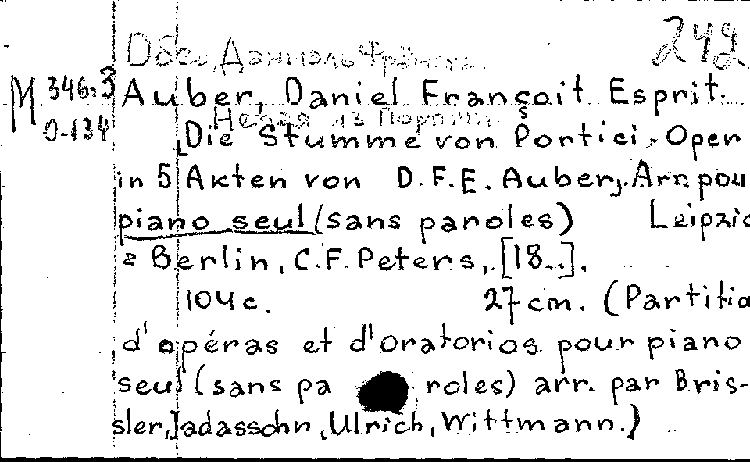 Обер, Даниэль Франсуа.
242
M 346:3
O-134
Auber, Daniel Françoit Esprit.
Немая из Портичи.
Die Stumme von Portici. Oper
in 5 Akten von D.F.E. Auber, Arr. pou
piano seul (sans paroles) Leipzig
Berlin, C.F. Peters, [18..].
104 c. 27 cm. (Partitio
d'opéras et d'oratorios pour piano
seul (sans pa roles) arr. par Bris-
sler, Jadassohn, Ulrich, Wittmann.)